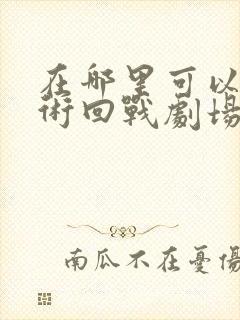 在哪里可以
術回戰劇場
南瓜不在憂傷